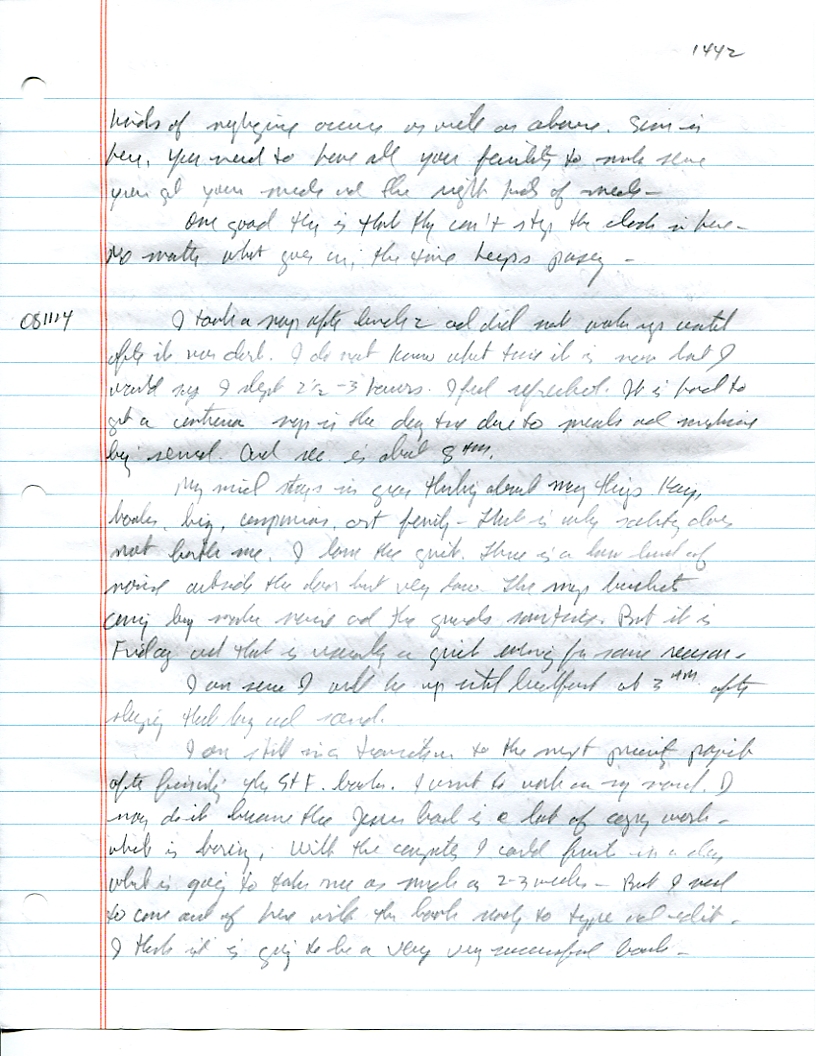 1442
kinds of negligence occurs as well as above. Since in
here, you need to have all your faculties to make sure
you get your meds and the right kinds of meds -
One good thing is that they can't stop the clock in here -
No matter what goes on, the time keeps passing -
081114
I took a nap after lunch and did not wake up until
after it was dark. I do not know what time it is now but I
would say I slept 2½-3 hours. I feel refreshed. It is hard to
get a continuous nap in the day time due to meals and
being served. is about 8 pm.
My mind stays in gear thinking about many things
books, companion, family - that is why does
not bother me. I love the quiet. There is a low level of
noise outside the door but very low. The mop buckets
by make noise and the guards sometimes. But it is
Friday and that is usually a quiet evening for some reason -
I am sure I will be up until breakfast at 3 AM after
sleeping that long and sound.
I am still in a transition to the next priority project
after finishing the S&F. books. I want to work on my novel. I
may do it because the Jesus book is a lot of copying work -
which is boring. With the computer I could finish in a day
what is going to take me as much as 2-3 weeks - But I need
to come out of here with the book ready to type and edit.
I think it is going to be a very very successful book -